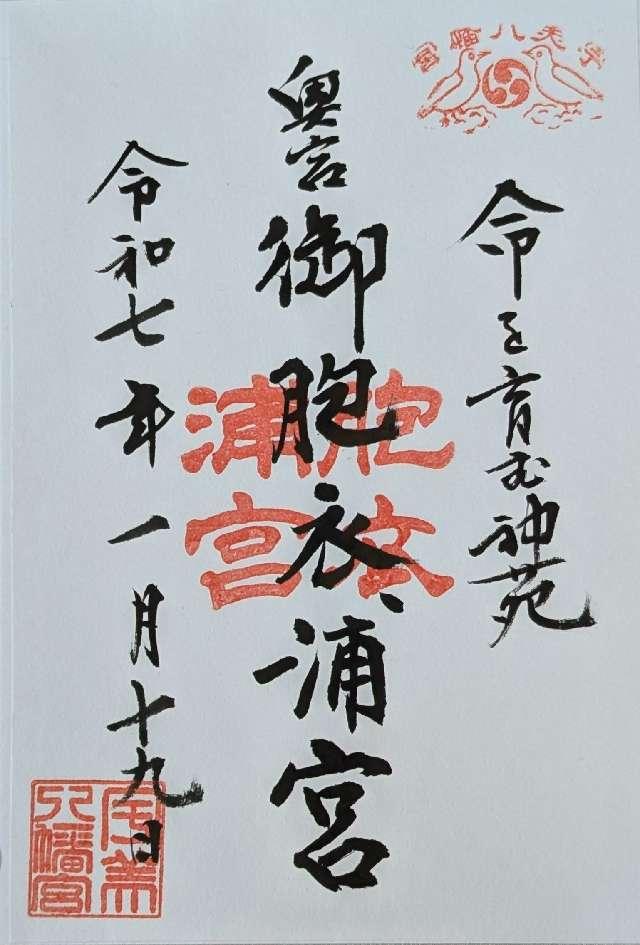 宇美八幡宮
命を育む神苑
奥宮
御胞衣浦宮
胞衣
浦宮
令和七年一月十九日
宇美
八幡宮